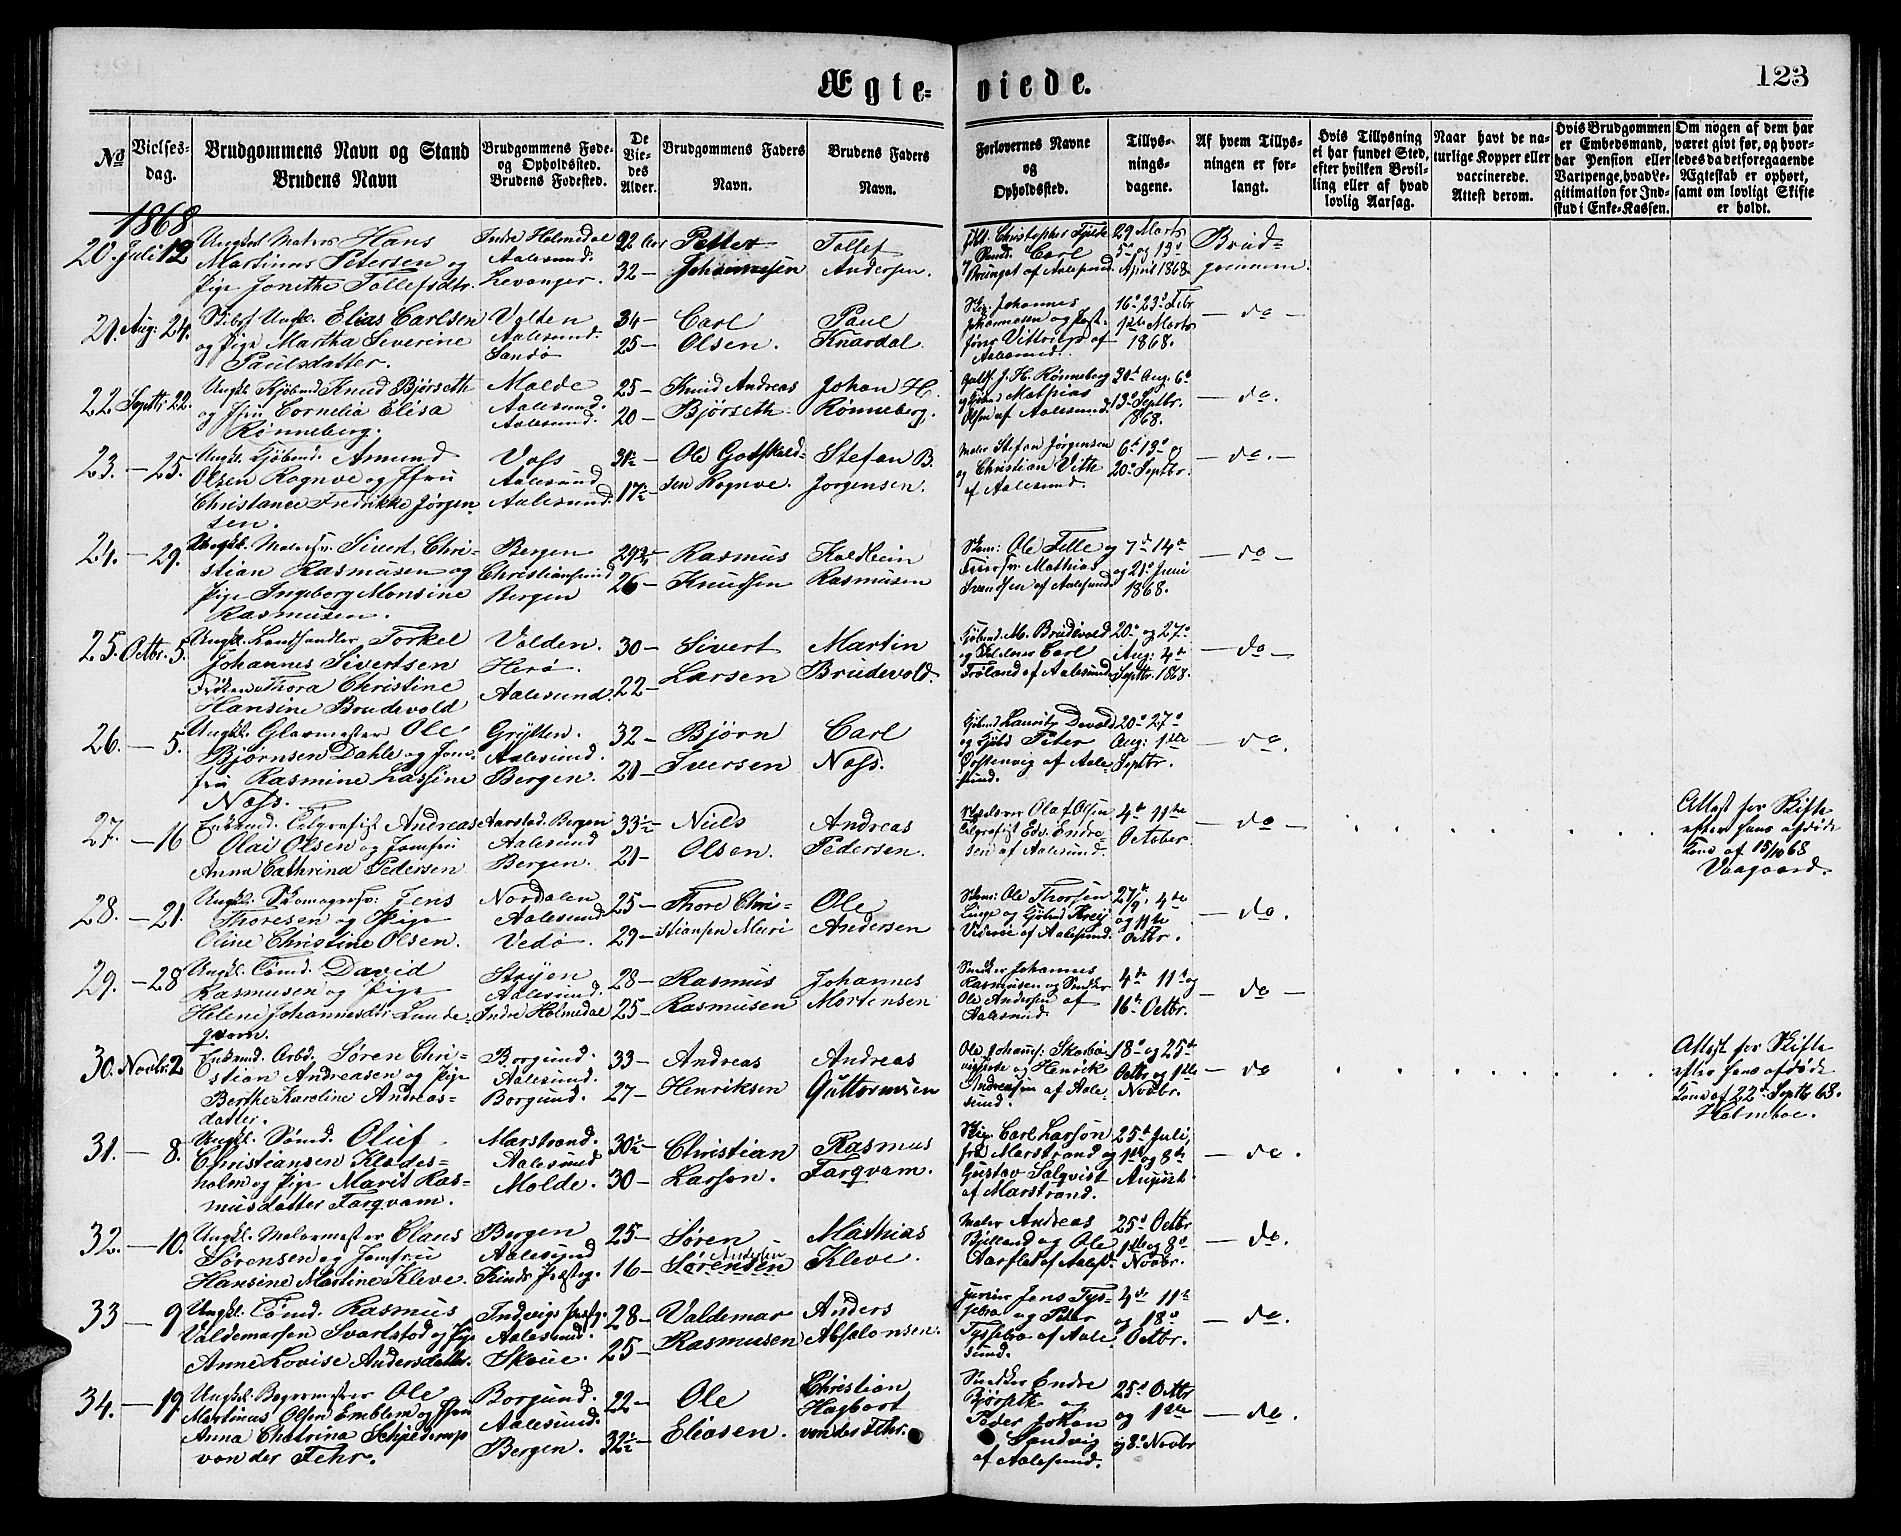 Ægte- viede. 123
No
Vielses-
dag.
Brudgommens Navn og Stand
Brudens Navn
Brudgommens Føde-
og Opholdssted.
Brudens Fødested.
De
Vie-
des
Alder.
Brudgommens Faders
Navn.
Brudens Faders
Navn.
Forlovernes Navne
og
Opholdssted.
Tillys-
nings-
dagene.
Af hvem Tillys-
ningen er for-
langt.
Hvis Tillysning
ei har fundet Sted,
efter hvilken Bevil-
ling eller af hvad
lovlig Aarsag.
Naar havt de na-
turlige Kopper eller
vaccinerede.
Attest derom.
Hvis Brudgommen
er Embedsmand,
har Pension eller
Vartpenge, hvad Le-
gitimation for Ind-
skud i Enke-Kassen.
Om nogen af dem har
været givt før, og hvor-
ledes da det foregaaende
Ægteskab er ophørt,
samt om lovligt Skifte
er holdt.
1868
20. Juli 12
Hans
Martinus Petersen og
Pige Jonetha Tollefsdtr.
Indre Holmedal
Aalesund.
Levanger.
22 Aar
32 –
Petter
Johannesen
Tollef
Andersen.
Christopher
Carl
af Aalesund.
29 Marts
5te og 13de
April 1868.
Brud-
gommen.
21. Aug: 24.
Ungk. Elias Carlsen
og Pige Martha Severine
Paulsdatter.
Volden
Aalesund.
Sandø
34 –
25 –
Carl
Olsen.
Paul
Knardal.
Johannes
Johannesen og
af
Aalesund.
16de 23de Febr
1ste Marts
1868.
– do –
22 Septbr 22.
Ungk. Kjøbmd. Knud Bjørseth
og Jfru Cornelia Elisa
Rønneberg.
Molde
Aalesund.
Aalesund.
25 –
20 –
Knud Andreas
Bjørseth.
Johan H.
Rønneberg.
J. H. Rønneberg
Mathias
Olsen af Aalesund.
30te Aug. 6te
13de Septbr.
1868.
– do.
23. – 25.
Ungk. Kjøbmd. Amund
Olsen Rognve og Jfru
Christance Fredrikke Jørgen-
sen.
Voss
Aalesund
Aalesund.
31½
17½
Ole Godskalk-
sen Rognve.
Stefan B.
Jørgensen.
Maler Stefan Jørgensen
og Christian Vith
af Aalesund.
6te 13de og
20de Septbr.
– do. –
24. – 29.
Ungk. Malersv. Sivert Chri-
stian Rasmusen og
Pige Ingeborg Monsine
Rasmusen.
Bergen
Christiansund
Bergen
29¾
26 –
Rasmus
Knudsen
Koldbein
Rasmusen
Ole Tille og
Mathias
Svendsen af Aalesund
7de 14de
og 21de Juni
1868.
– do –
25. Octbr. 5.
Ungk. Landhandler Torkel
Johannes Sivertsen
Frøken Thora Christine
Hansine Brudevold
Volden.
Herø.
Aalesund.
30 –
22 –
Sivert
Larsen
Martin
Brudevold.
Kjøbmd. M. Brudevold
og Carl
Frøland af Aalesund
20de og 27de
Aug: 4de
Septbr. 1868.
– do –
26. – 5.
Ungk. Glarmester Ole
Bjørnsen Dahle og Jom-
fru Rasmine Lassine
Nass.
Grytten.
Aalesund.
Bergen.
32 –
21 –
Bjørn
Iversen
Carl
Nass.
Kjøbmd Lauritz Devold
og Peter
af Aale-
sund.
20de 27de
Aug: 1ste
Septbr.
– do.
27. – 16
Enkemd. Telgrafist Andreas
Olai Olsen og Jomfru
Anna Cathrina Pedersen
Aarstad. Bergen
Aalesund
Bergen.
33½
21 –
Niels
Olsen.
Andreas
Pedersen.
Olaf Olsen
Telgrafist Edv. Endre-
sen af Aalesund.
4de 11te
October.
– do –
Attest for Skifte
efter hans afdøde
Kone af 15/10 68
Vaagaard.
28. – 21.
Ungk. Skomagersv: Jens
Thoresen og Pige
Oline Christine Olsen.
Nordalen
Aalesund
Vedø.
25 –
29 –
Thore Chri-
stiansen Muri
Ole
Andersen
Ole Thorsen
Linge og Kjøbmd
Viderøe af Aalesund.
27/9. 4de
og 11te
Octbr.
– do.
29. – 28
Ungk. Tømd. David
Rasmusen og Pige
Helene Johannesdtr Lande-
qvam.
Stryen
Aalesund.
Indre Holmedal
28 –
25 –
Rasmus
Rasmusen
Johannes
Mortensen
Snedker Johannes
Rasmusen og Snedker
Ole Andersen af
Aalesund.
4de 11te og
16te Octbr.
– do –
30. Novbr. 2
Enkemd. Arbd. Søren Chri-
stian Andreasen og Pige
Berthe Karoline Andreas-
datter.
Borgund.
Aalesund.
Borgund.
33 –
27 –
Andreas
Henriksen
Andreas
Guttormsen
Ole Johans:
og Henrik
Andreasen af Aale-
sund.
18de og 25de
Octbr og 1ste
Novbr.
– do
Attest for Skifte
efter hans afdøde
Kone af 22de Septb 68.
Holmboe.
31. – 8.
Ungk. Sømd. Oluf
Christiansen Klades-
holm og Pige Marit Ras-
musdatter Farqvam.
Marstrand.
Aalesund
Molde.
30½
30 –
Christian
Larson.
Rasmus
Farqvam.
Carl Larson
fra Marstrand og
Gustav Salqvist
af Marstrand.
25de Juli,
1ste og 8de
August.
– do.
32. – 10.
Ungk. Malermester Claus
Sørensen og Jomfru
Hansine Martine Kleve.
Bergen
Aalesund
Kinds Præsteg.
25 –
16 –
Søren
Andersen
Sørensen
Mathias
Kleve.
Maler Andreas
Bjelland og Ole
Aarflot af Aalesd.
25de Octbr
1ste og 8de
Novbr.
– do.
33 – 9
Ungk. Tømd. Rasmus
Valdemarsen Svartstad og Pige
Anne Lovise Andersdatter.
Indvigs Præstg.
Aalesund.
Skoue.
28 –
25 –
Valdemar
Rasmusen
Anders
Absalonsen.
Jens Tys-
og Peter
Tyssebo af Aale-
sund.
4de 11te
og 18de
Octbr.
– do.
34. – 19
Ungk. Bagermester Ole
Martinus Olsen Emblem og Jfru
Anna Chatrina Schjelderup
von der Fehr.
Borgund.
Aalesund.
Bergen.
22 –
32½
Ole
Eliasen.
Christian
Hagbart
von der Fehr.
Snedker Endre
Bjørseth og
Peder Johan
Sandvig
af Aalesund.
25de Octbr
og 1ste
og 8de Novbr
– do.